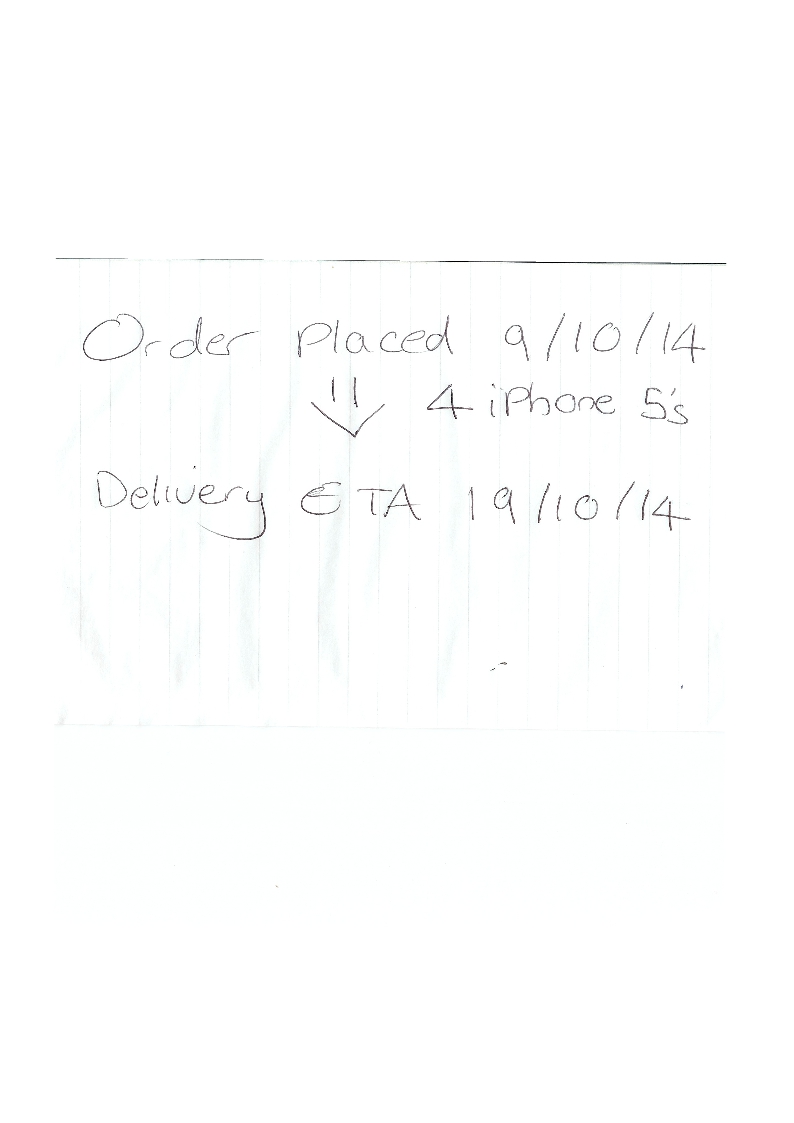 Order Placed 9/10/14
4 iPhone 5's
Delivery ETA 19/10/14